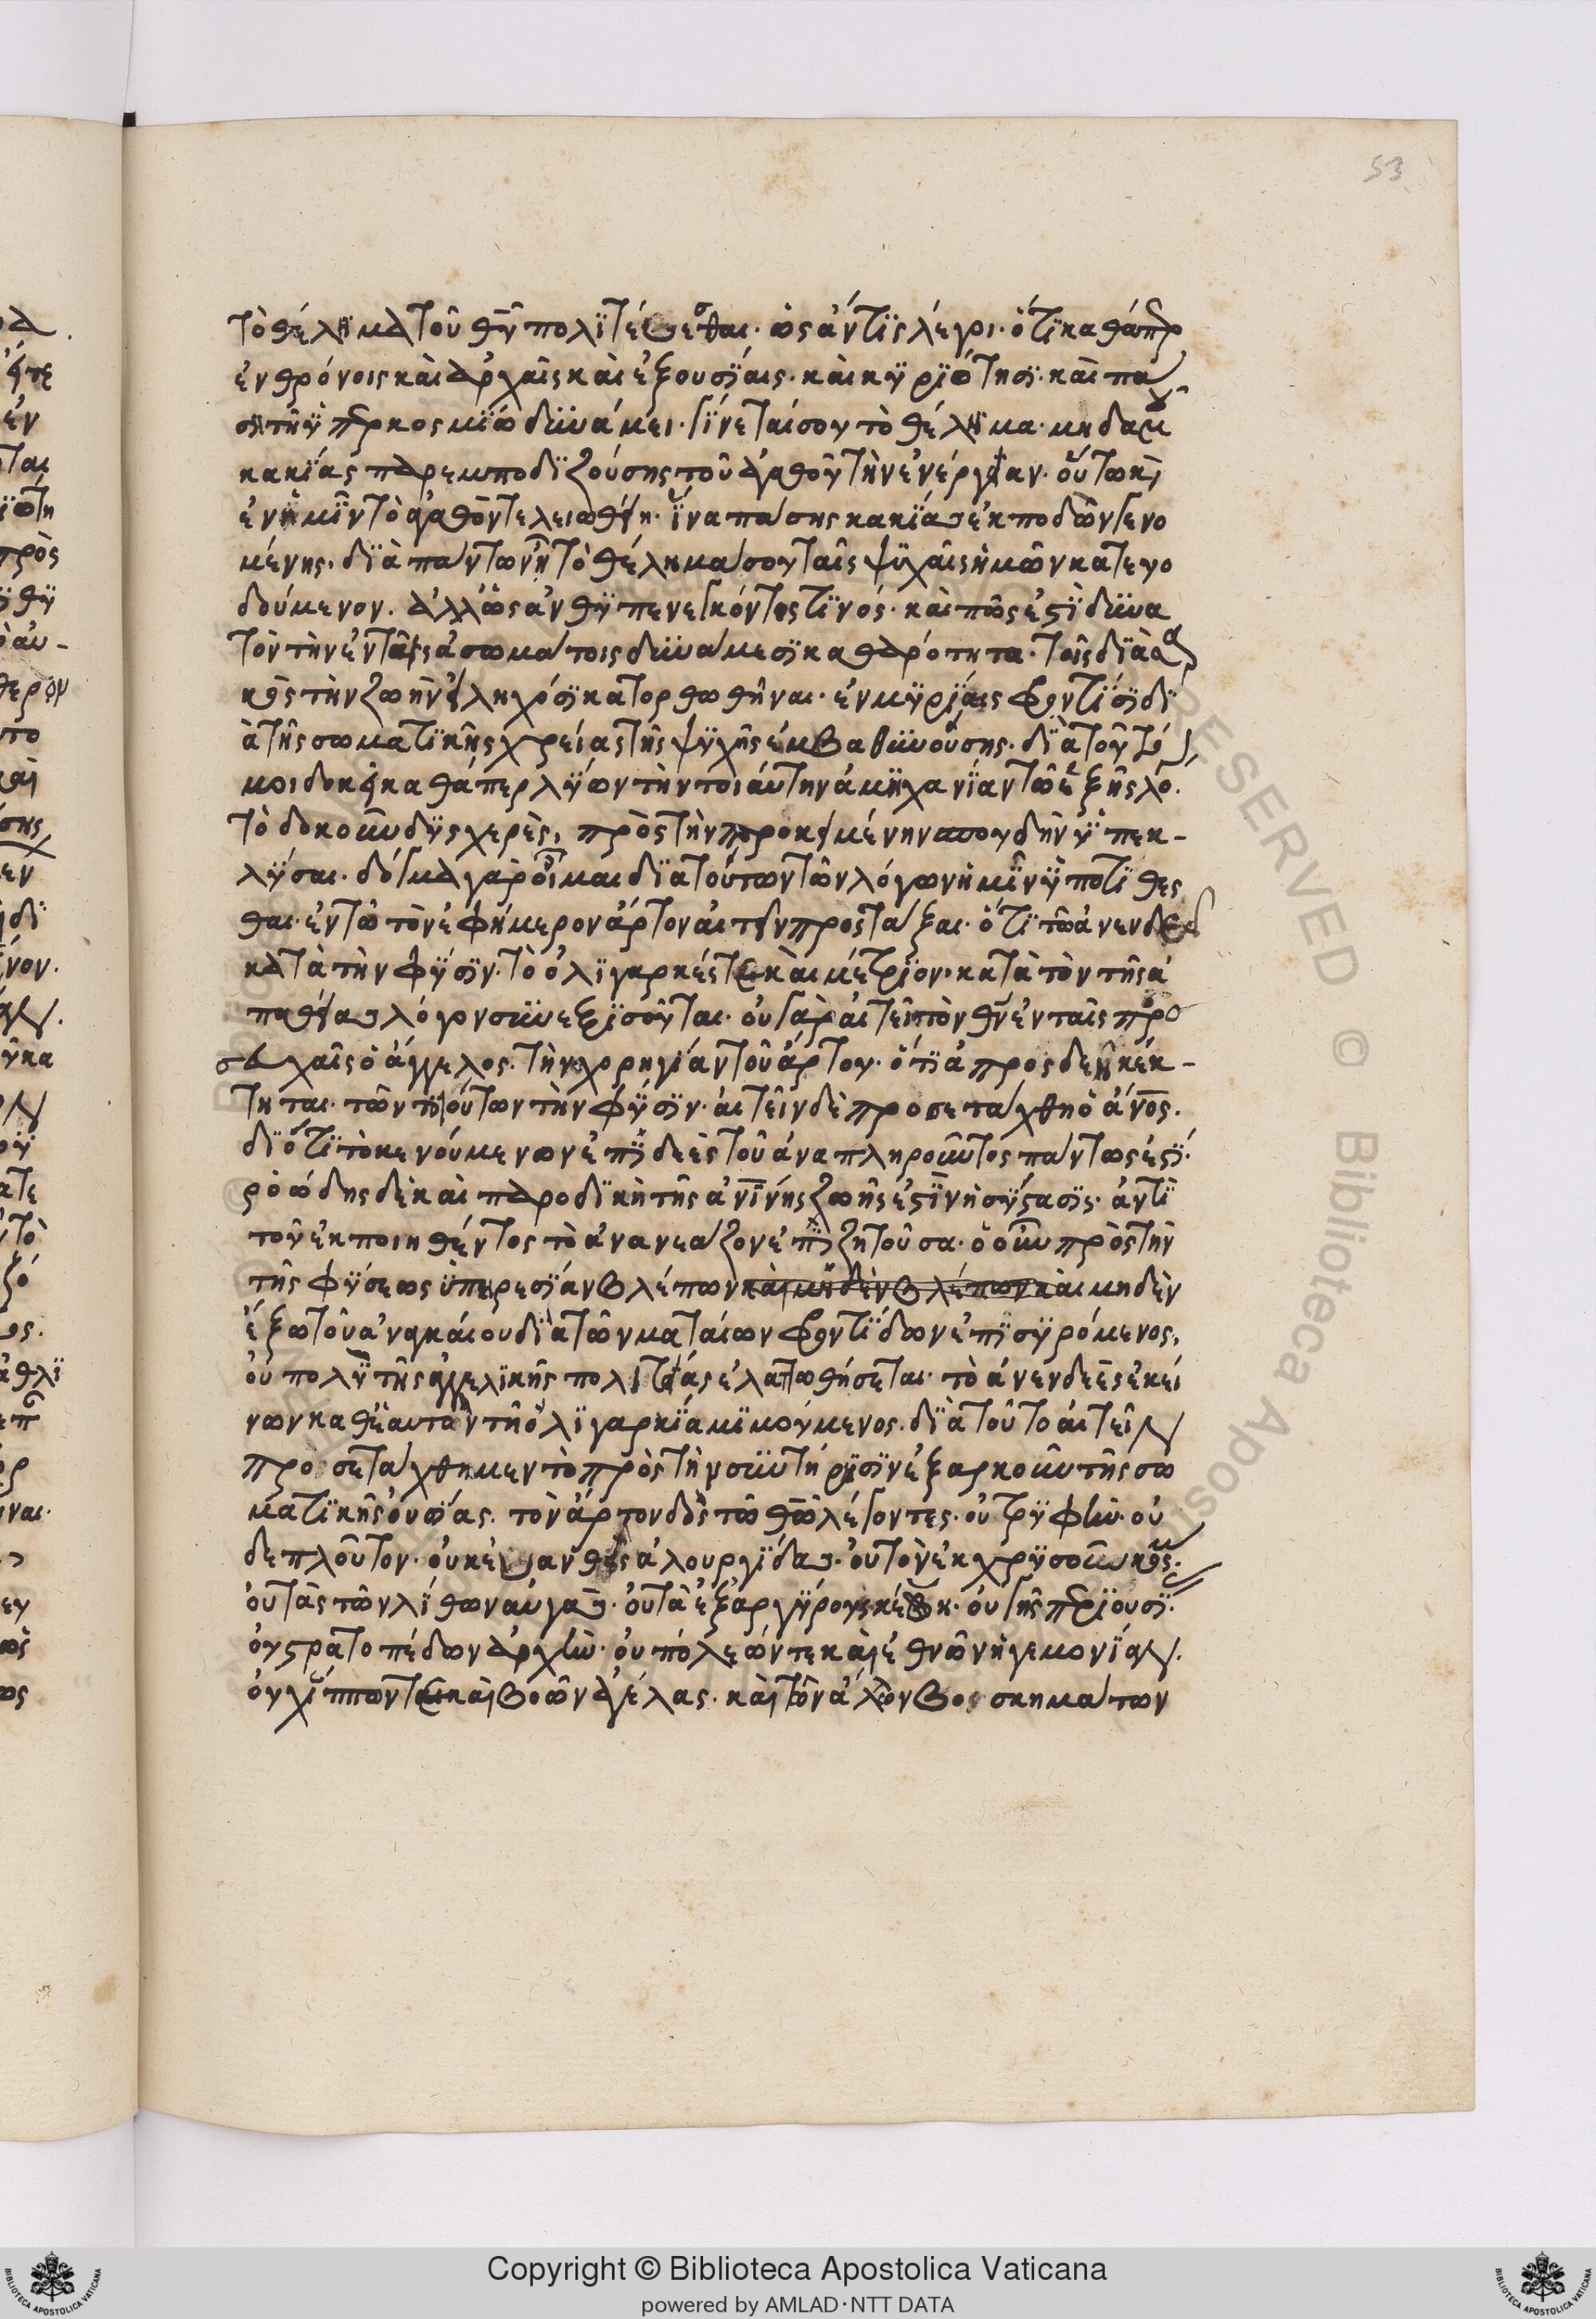 53
τὸ θέλημα τοῦ θῦ πολϊτεύεσθαι· ὡς ἄν τϊς λέγοι· ὅτϊ καθάπερ
ἐν θρόνοις καὶ ἀρχαῖς καὶ ἐξουσΐαις· καὶ κϋρϊότησϊ· καὶ πά
σῃ τῇ ϋπερκοσμΐω δϋνάμει· γΐνεταί σου τὸ θέλημα· μηδαμοῦ
κακΐας παρεμποδϊζούσης τοῦ ἀγαθοῦ τὴν ἐνέργειαν· οὕτω καὶ
ἐν ἡμῖν τὸ ἀγαθὸν τελειωθείη· ἵνα πάσης κακΐας ἐκποδὼν γενο
μένης· δϊὰ πάντων ᾖ τὸ θέλημά σου ταῖς ψϋχαῖς ἡμῶν κατευο
δούμενον. ἀλλ' ὡς ἀνθϋπενεγκόντος τϊνός· καὶ πῶς ἐστϊ δϋνα
τὸν τὴν ἐν ταῖς ἀσωμάτοις δϋνάμεσϊ καθαρότητα· τοῖς διὰ σαρ
κὸς τὴν ζωὴν εἰληχόσϊ κατορθωθῆναι· ἐν μϋρΐαις φροντΐσϊ δϊ
ὰ τῆς σωματϊκῆς χρείας τῆς ψϋχῆς ἐμβαθϋνούσης· δϊὰ τοῦτό
μοι δοκεῖ καθάπερ λϋων τὴν τοιαύτην ἀμηχανΐαν τῶ ἑξῆς λό.
τὸ δοκοῦν δϋσχερὲς, πρὸς τὴν προκειμένην σπουδὴν ϋπεκ-
λῦσαι· δόγμα γὰρ οἶμαι διὰ τούτων τῶν λόγων ἡμῖν ϋποτΐθεσ
θαι· ἐν τῶ τὸν ἐφήμερον ἄρτον αἰτεῖν προστάξαι· ὅτϊ τῶ ἀνενδεεῖ
κατὰ τὴν φΰσϊν· τὸ ὀλϊγαρκές τε καὶ μέτρϊον· κατὰ τὸν τῆς ἀ
παθείας λόγον σϋνεξϊσοῦται· οὐ γὰρ αἰτεῖ τὸν θν ἐν ταῖς προ
σευχαῖς ὁ ἄγγελος· τὴν χορηγΐαν τοῦ ἄρτου· ὅτϊ ἀπροσδεῆ κέκ-
τηται· τῶν τοιούτων τὴν φΰσϊν· αἰτεῖν δὲ προσετάχθη ὁ ἄνος.
δϊότϊ τὸ κενούμενον ἐπϊδεὲς τοῦ ἀναπληροῦντος πάντως ἐστΐ·
ῥοώδης δὲ καὶ παροδϊκὴ τῆς ἀνΐνης ζωῆς ἐστϊν ἡ σΰστασϊς· ἀντὶ
τοῦ ἐκποιηθέντος τὸ ἀνανεάζον ἐπϊζητοῦσα· ὁ οὖν πρὸς τὴν
τῆς φΰσεως ὑπηρεσΐαν βλέπων καὶ μηδὲν βλέπων καὶ μηδὲν
ἔξω τοῦ ἀναγκαίου διὰ τῶν ματαίων φροντΐδων ἐπϊσϋρόμενος,
οὐ πολὺ τῆς ἀγγελϊκῆς πολιτείας ἐλαττωθήσεται· τὸ ἀνενδεὲς ἐκεί
νων καθ' ἑαυτὸν τῇ ὀλϊγαρκΐα μϊμούμενος· δϊὰ τοῦτο αἰτεῖν
προσετάχθημεν τὸ πρὸς τὴν σϋντήρησϊν ἐξαρκοῦν τῆς σω
ματϊκῆς οὐσΐας· τὸν ἄρτον δὸς τῶ θῶ λέγοντες· οὐ τρϋφὴν· οὐ
δὲ πλοῦτον· οὐκ εὐανθεῖς ἁλουργΐδας· οὐ τὸν ἐκ χρϋσοῦ κόσμον·
οὐ τὰς τῶν λΐθων αὐγάς· οὐ τὰ ἐξ ἀργΰρου σκεύη· οὐ γῆς περϊουσΐ·
οὐ στρατοπέδων ἀρχὴν· οὐ πόλεών τε καὶ ἐθνῶν ἡγεμονΐαν.
οὐχ ἵππων τε καὶ βοῶν ἀγέλας· καὶ τῶν ἄλλων βοσκημάτων
Copyright © Biblioteca Apostolica Vaticana
powered by AMLAD·NTT DATA